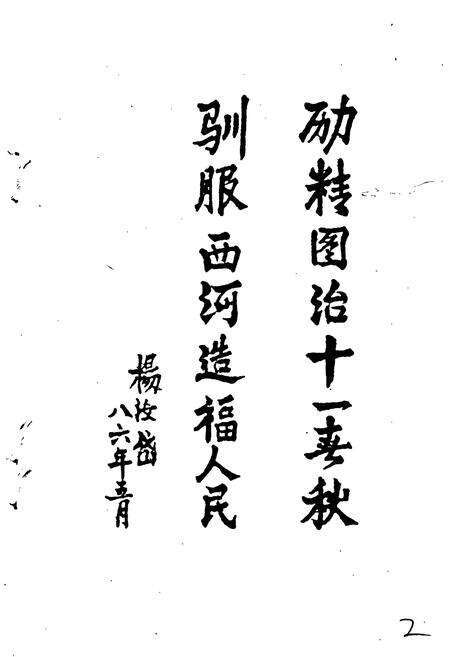 励精图治十一春秋
驯服西河造福人民
楊汝岱
八六年五月
2